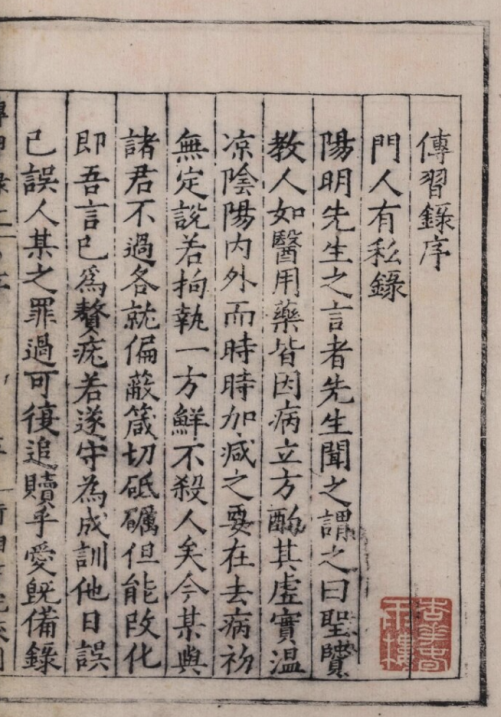 傳習錄序
門人有私錄
陽明先生之言者先生聞之謂之曰聖賢
教人如醫用藥皆因病立方酌其虛實溫
凉陰陽内外而時時加减之要在去病初
無定說若拘執一方鮮不殺人矣今某與
諸君不過各就偏蔽箴切砥礪但能改化
即吾言已爲贅疣若遂守為成訓他日誤
已誤人某之罪過可復追贖乎愛既備錄